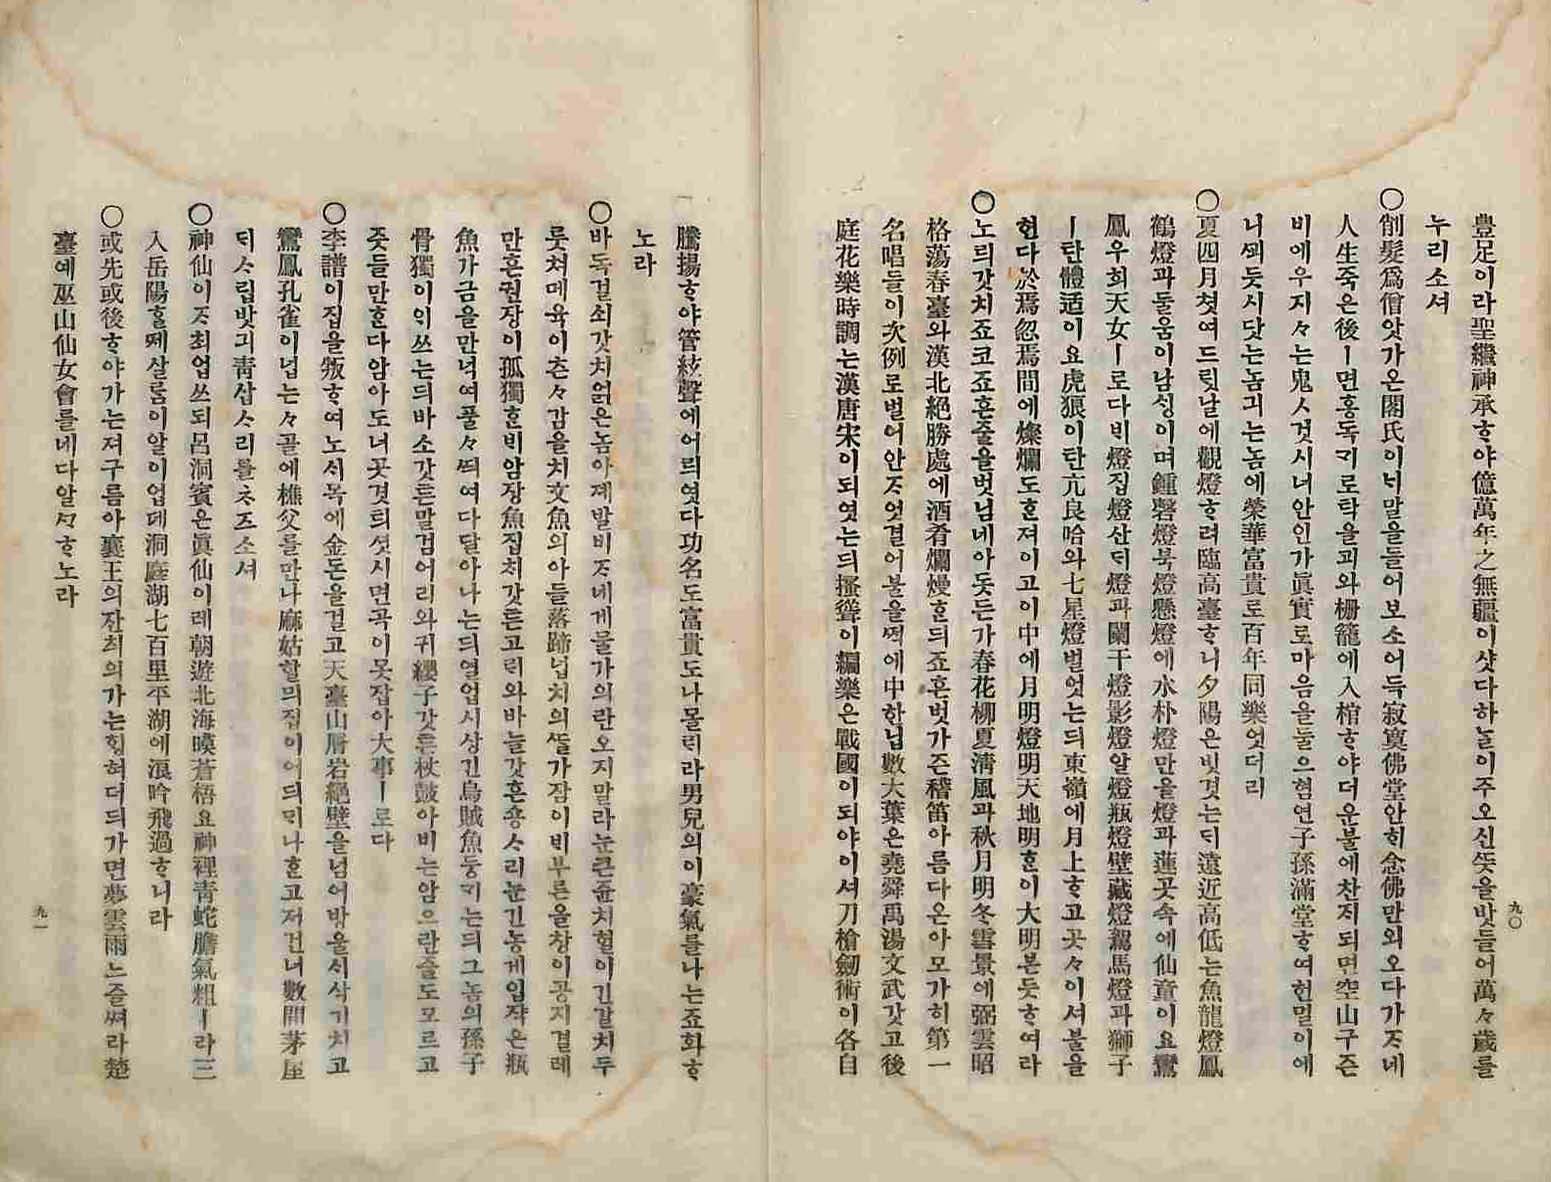 豊足이라聖繼神承ᄒᆞ야億萬年之無疆이샷다하ᄂᆞᆯ이주오신ᄯᅳᆺ을밧들어萬々歲를
누리소셔
○削髮爲僧앗가온閣氏이ᄂᆡ말을들어보소어득寂寞佛堂안ᄒᆡ念佛만외오다가ᄌᆞ네
人生죽은後ㅣ면홍독ᄭᆡ로탁을괴와柵籠에入棺ᄒᆞ야더운불에찬ᄌᆡ되면空山구즌
비에우지々는鬼ㅅ것시너안인가眞實로마음을둘으혐연子孫滿堂ᄒᆞ여헌멀이에
니ᄭᅬ듯시닷는놈긔는놈에榮華富貴로百年同樂엇더리
○夏四月쳣여드ᄅᆡᆺ날에觀燈ᄒᆞ려臨高臺ᄒᆞ니夕陽은빗겻는ᄃᆡ遠近高低는魚龍燈鳳
鶴燈과둘움이남싱이며鍾磬燈북燈懸燈에水朴燈만을燈과蓮곳속에仙童이요鸞
鳳우희天女ㅣ로다ᄇᆡ燈집燈산ᄃᆡ燈과闌干燈影燈알燈瓶燈壁藏燈駕馬燈과獅子
ㅣ탄體适이요虎狼이탄亢良哈와七星燈벌엇는ᄃᆡ東嶺에月上ᄒᆞ고곳々이셔불을
현다於焉忽焉間에燦爛도ᄒᆞᆫ져이고이中에月明燈明天地明ᄒᆞᆫ이大明본듯ᄒᆞ여라
○노ᄅᆡ갓치죠코죠흔줄을벗님네아돗든가春花柳夏淸風과秋月明冬雪景에弼雲昭
格蕩春臺와漢北絶勝處에酒肴爛熳ᄒᆞᆫᄃᆡ죠흔벗가즌稽笛아름다온아모가히第一
名唱들이次例로벌어안ᄌᆞ엇결어불을ᄶᅥᆨ에中한닙數大葉은堯舜禹湯文武갓고後
庭花樂時調는漢唐宋이되엿는ᄃᆡ搔聳이編樂은戰國이되야이셔刀槍劒術이各自
九〇
騰揚ᄒᆞ야管絃聲에어ᄅᆡ엿다功名도富貴도나몰ᄅᆡ라男兒의이豪氣를나는죠화ᄒᆞ
노라
○바독걸쇠갓치얽은놈아제발비ᄌᆞ네게물가의란오지말라눈큰쥰치헐이긴갈치두
룻쳐메육이츤々감을치文魚의아들落蹄넙치의ᄯᅡᆯ가잠이ᄇᆡ부른올창이공지결레
만흔권장이孤獨ᄒᆞᆫᄇᆡ암장魚집치갓튼고ᄅᆡ와바늘갓흔숑ㅅ리눈긴농게입쟉은瓶
魚가금을만녁여풀々ᄯᅱ여다달아나는ᄃᆡ열업시상긴烏賊魚둥ᄀᆡ는ᄃᆡ그놈의孫子
骨獨이ᄋᆡ쓰는ᄃᆡ바소갓튼말검어리와귀纓子갓튼杖鼓아비는암으란즐도모르고
즛들만ᄒᆞᆫ다암아도너곳겻ᄐᆡ셧시면곡이못잡아大事ㅣ로다
○李譜이집을叛ᄒᆞ여노ᄉᆡ목에金돈을걸고天臺山層岩絶壁을넘어방울ᄉᆡ삭기치고
鸞鳳孔雀이넙는々골에樵父를만나麻姑할믜집이어ᄃᆡᄆᆡ나ᄒᆞᆫ고져건너數間茅屋
ᄃᆡㅅ립밧긔靑삽ㅅ리를ᄎᆞᄌᆞ소셔
○神仙이ᄌᆞ최업쓰되呂洞賓은眞仙이레朝遊北海暎蒼梧요神裡靑蛇膽氣粗ㅣ라三
入岳陽ᄒᆞᆯᄶᅦ살룸이알이업데洞庭湖七百里平湖에浪吟飛過ᄒᆞ니라
○或先或後ᄒᆞ야가는져구름아襄王의쟌최의가는ᄒᆡᆼ혀더듸가면夢雲雨느즐쎠라楚
臺예巫山仙女會를네다알녀ᄒᆞ노라
九一